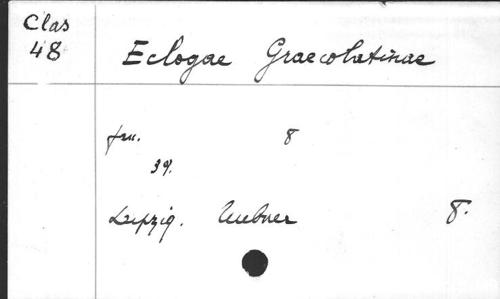 Clas
48
Eclogae Graecolatinae
fsc. 8
39.
Leipzig. Teubner 8.